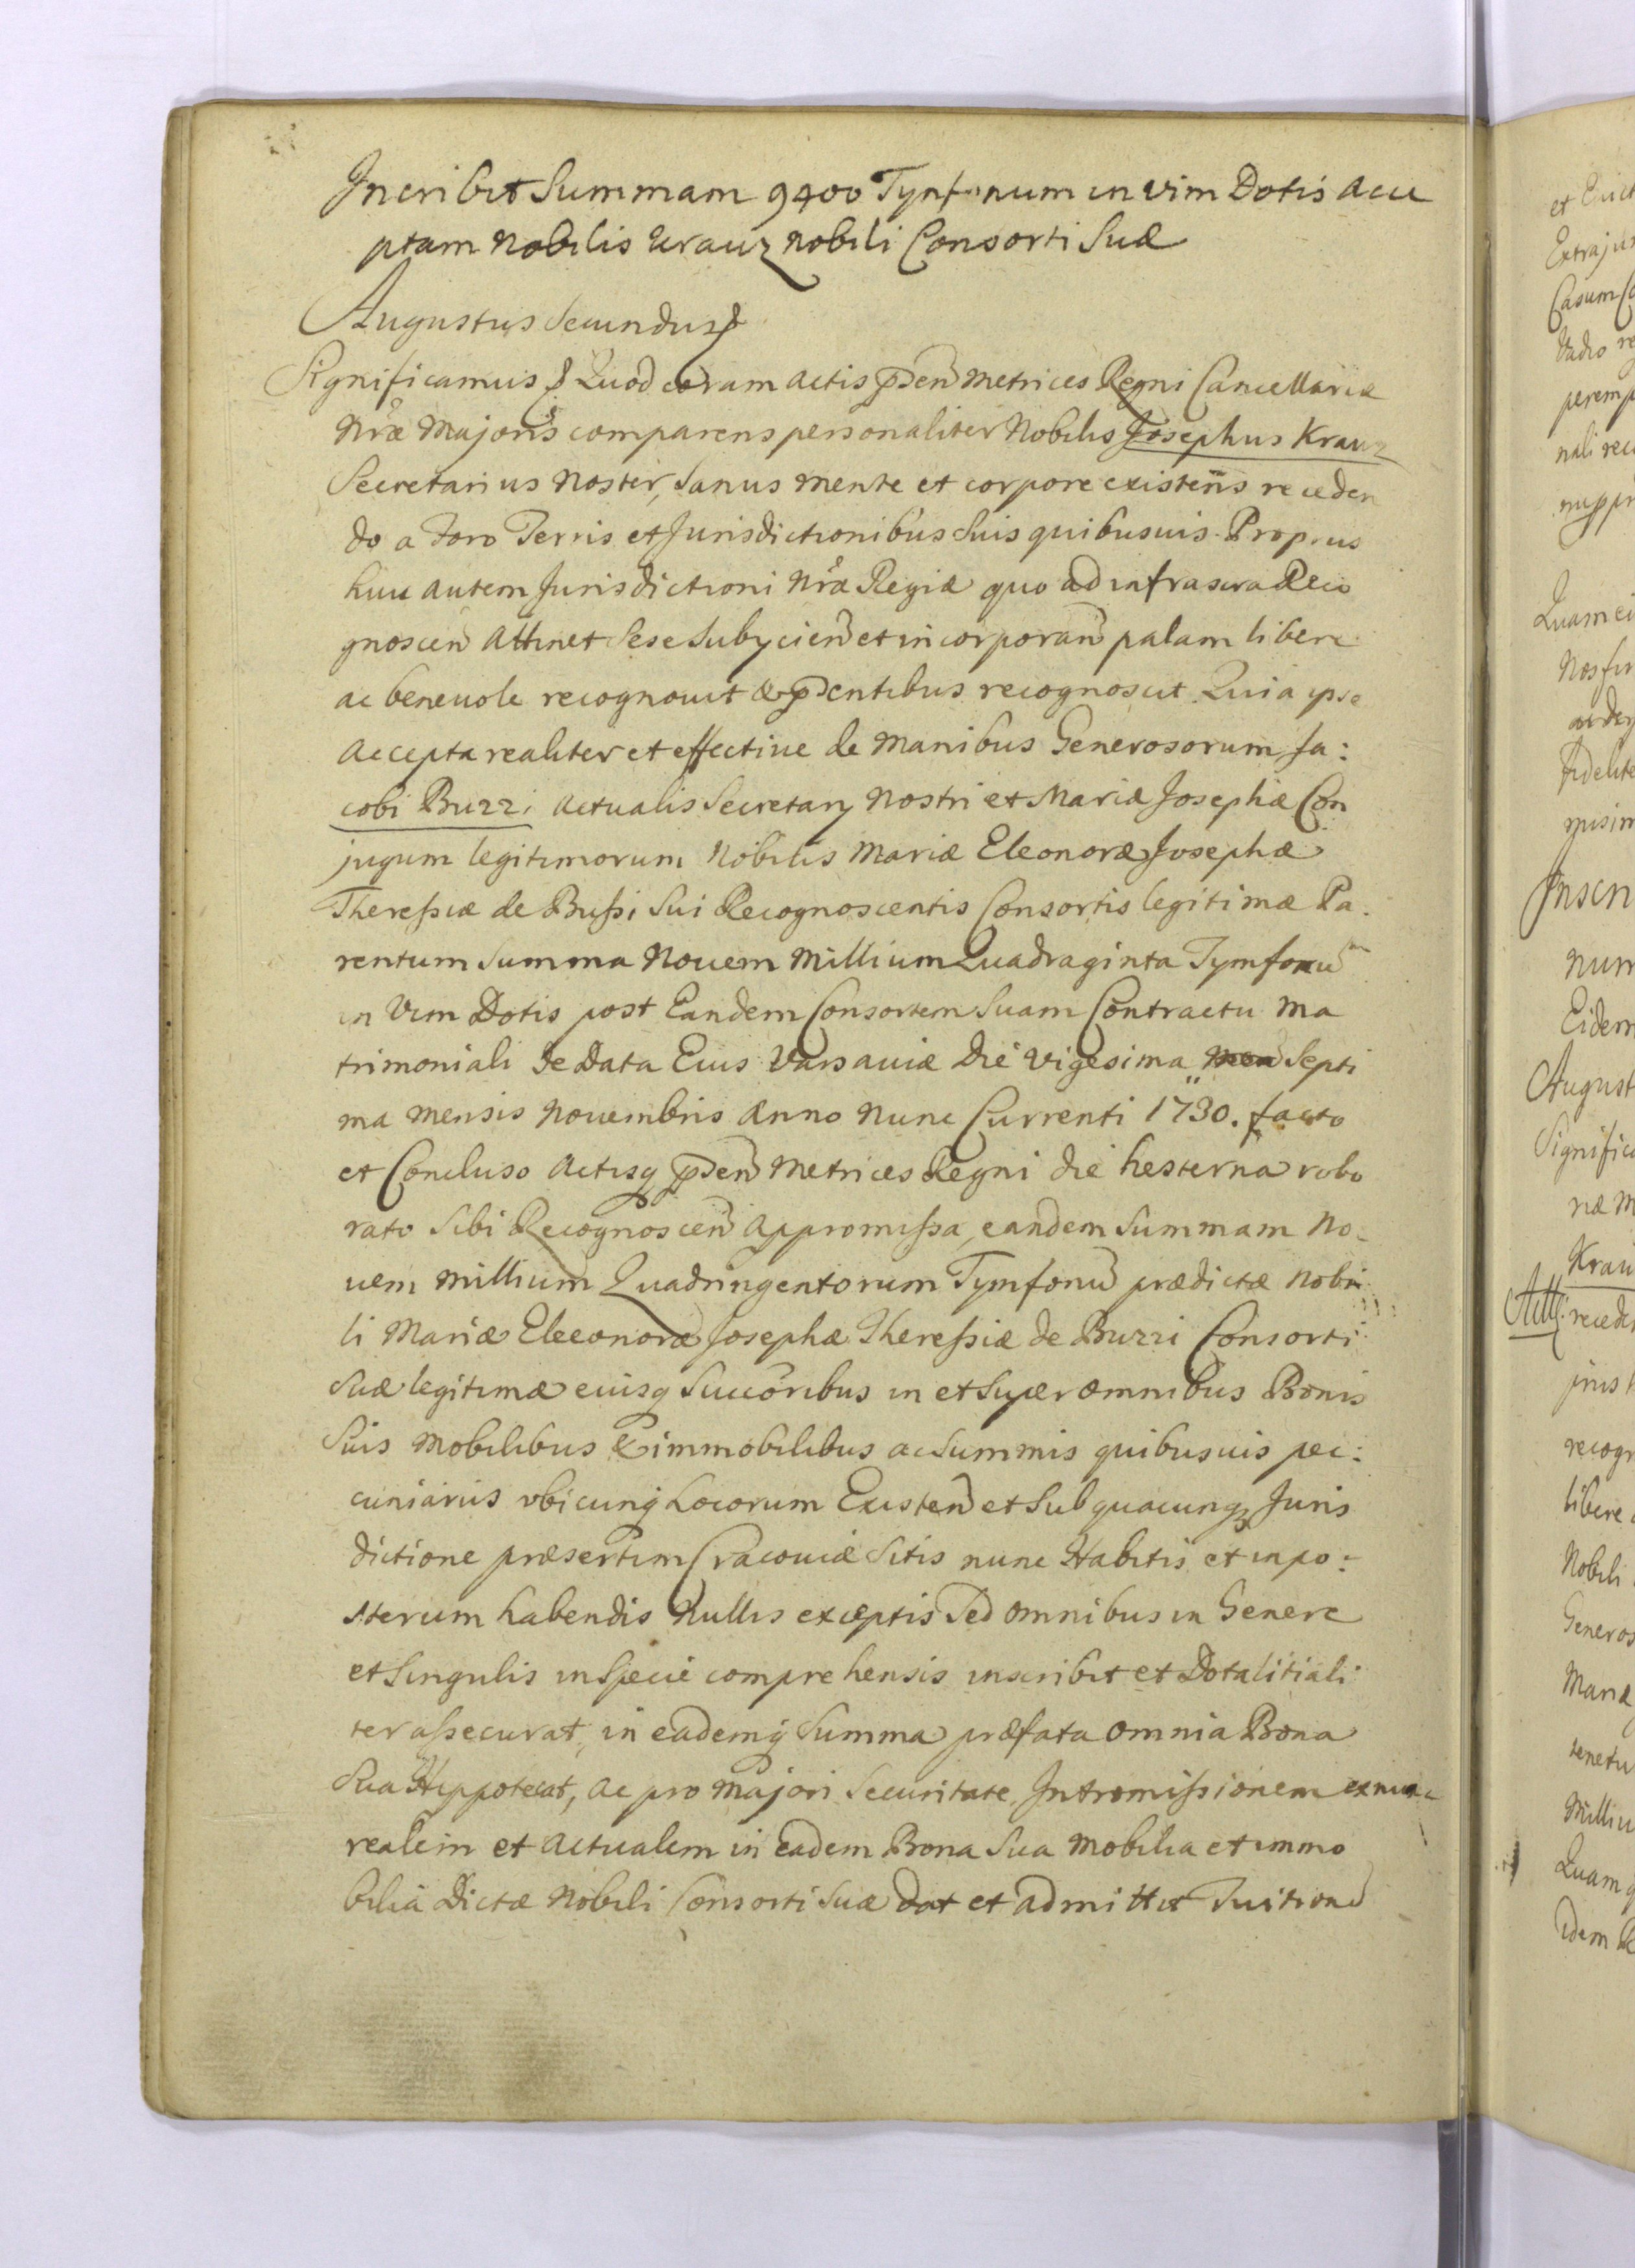 Incribit Summam 9400 Tynfonum in vim Dotis acce
ptam Nobilis Krauz Nobili Consorti Suæ
Augustus Secundus
Significamus Quod coram actis pñden Metrices Regni Cancellariæ
Nræ Majoris comparens personaliter Nobilis Josephus Krauz
Secretarius Noster, Sanus mente et corpore existens receden
do a Foro Terris et Jurisdictionibus Suis quibusuis Proprus
huic autem Jurisdictioni Nræ Regiæ quo ad infrascra Reco
gnoscen attinet Sese Subycien et incorporan palam libere
ac beneuole recognouit & pñdentibus recognoscit Quia ipse
accepta realiter et effectiue de manibus Generosorum Ja:
cobi Buzzi actualis Secretary Nostri et Mariæ Josephæ Con
jugum legitimorum Nobilis Mariæ Eleonoræ Josephæ
Theressiæ de Bussi Sui Recognoscentis Consortis legitimæ Pa.
rentum Summa Nouem Millium Quadraginta Tymfonu
in Vim Dotis post Eandem Consortem Suam Contractu Ma
trimoniali de Data Eius Varsauiæ Die vigesima Septi
ma mensis Nouembris Anno Nunc Currenti 1730. facto
et Concluso actisq pñden Metrices Regni die hesterna robo
rato Sibi Recognoscen appromissa, eandem Summam No-
uem Millium Quadringentorum Tymfonu prædictæ Nobi
li Mariæ Eleeonoræ Josephæ Theressiæ de Buzzi Consorti
Suæ legitimæ eiusq Succoribus in et Super omnibus Bonis
Suis Mobilibus & immobilibus ac Summis quibusuis pec:
cuniariis vbicunq Locorum Existen et Sub quacunq Juris
dictione præsertim Cracouiæ Sitis nunc Habitis et inpo:
sterum habendis Nullis exceptis Sed omnibus in Genere
et Singulis in Specie comprehensis inscribit et Dotalitiali
ter assecurat, in eademq Summa præfata omnia Bona
Sua Hippotecat, ac pro majori Securitate Intromissionem ex nunc
realem et actualem in eadem Bona Sua Mobilia et immo
bilia Dictæ Nobili Consorti Suæ dat et admittit Tuitione